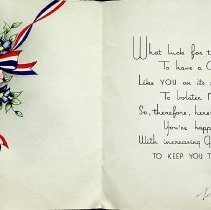 What luck for t
To have a
Like YOU on its
To bolster
So, therefore, here
You're happ
With increasing
TO KEEP YOU T